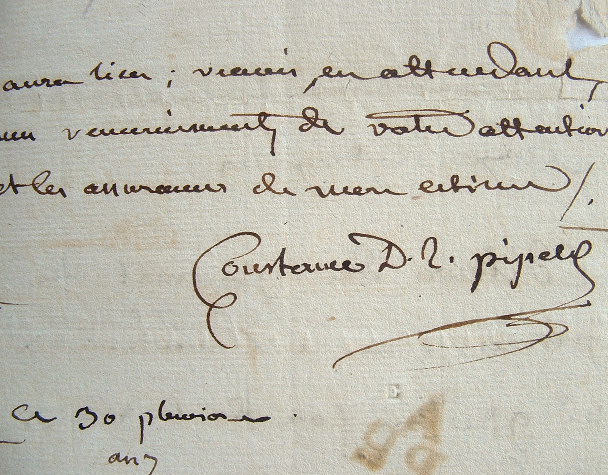 aura lieu ; recevez, en attendant,
mes remerciements de votre attention
et les assurances de mon estime /.
Constance D. T. pipelet
Ce 30 pluviose .
an 7